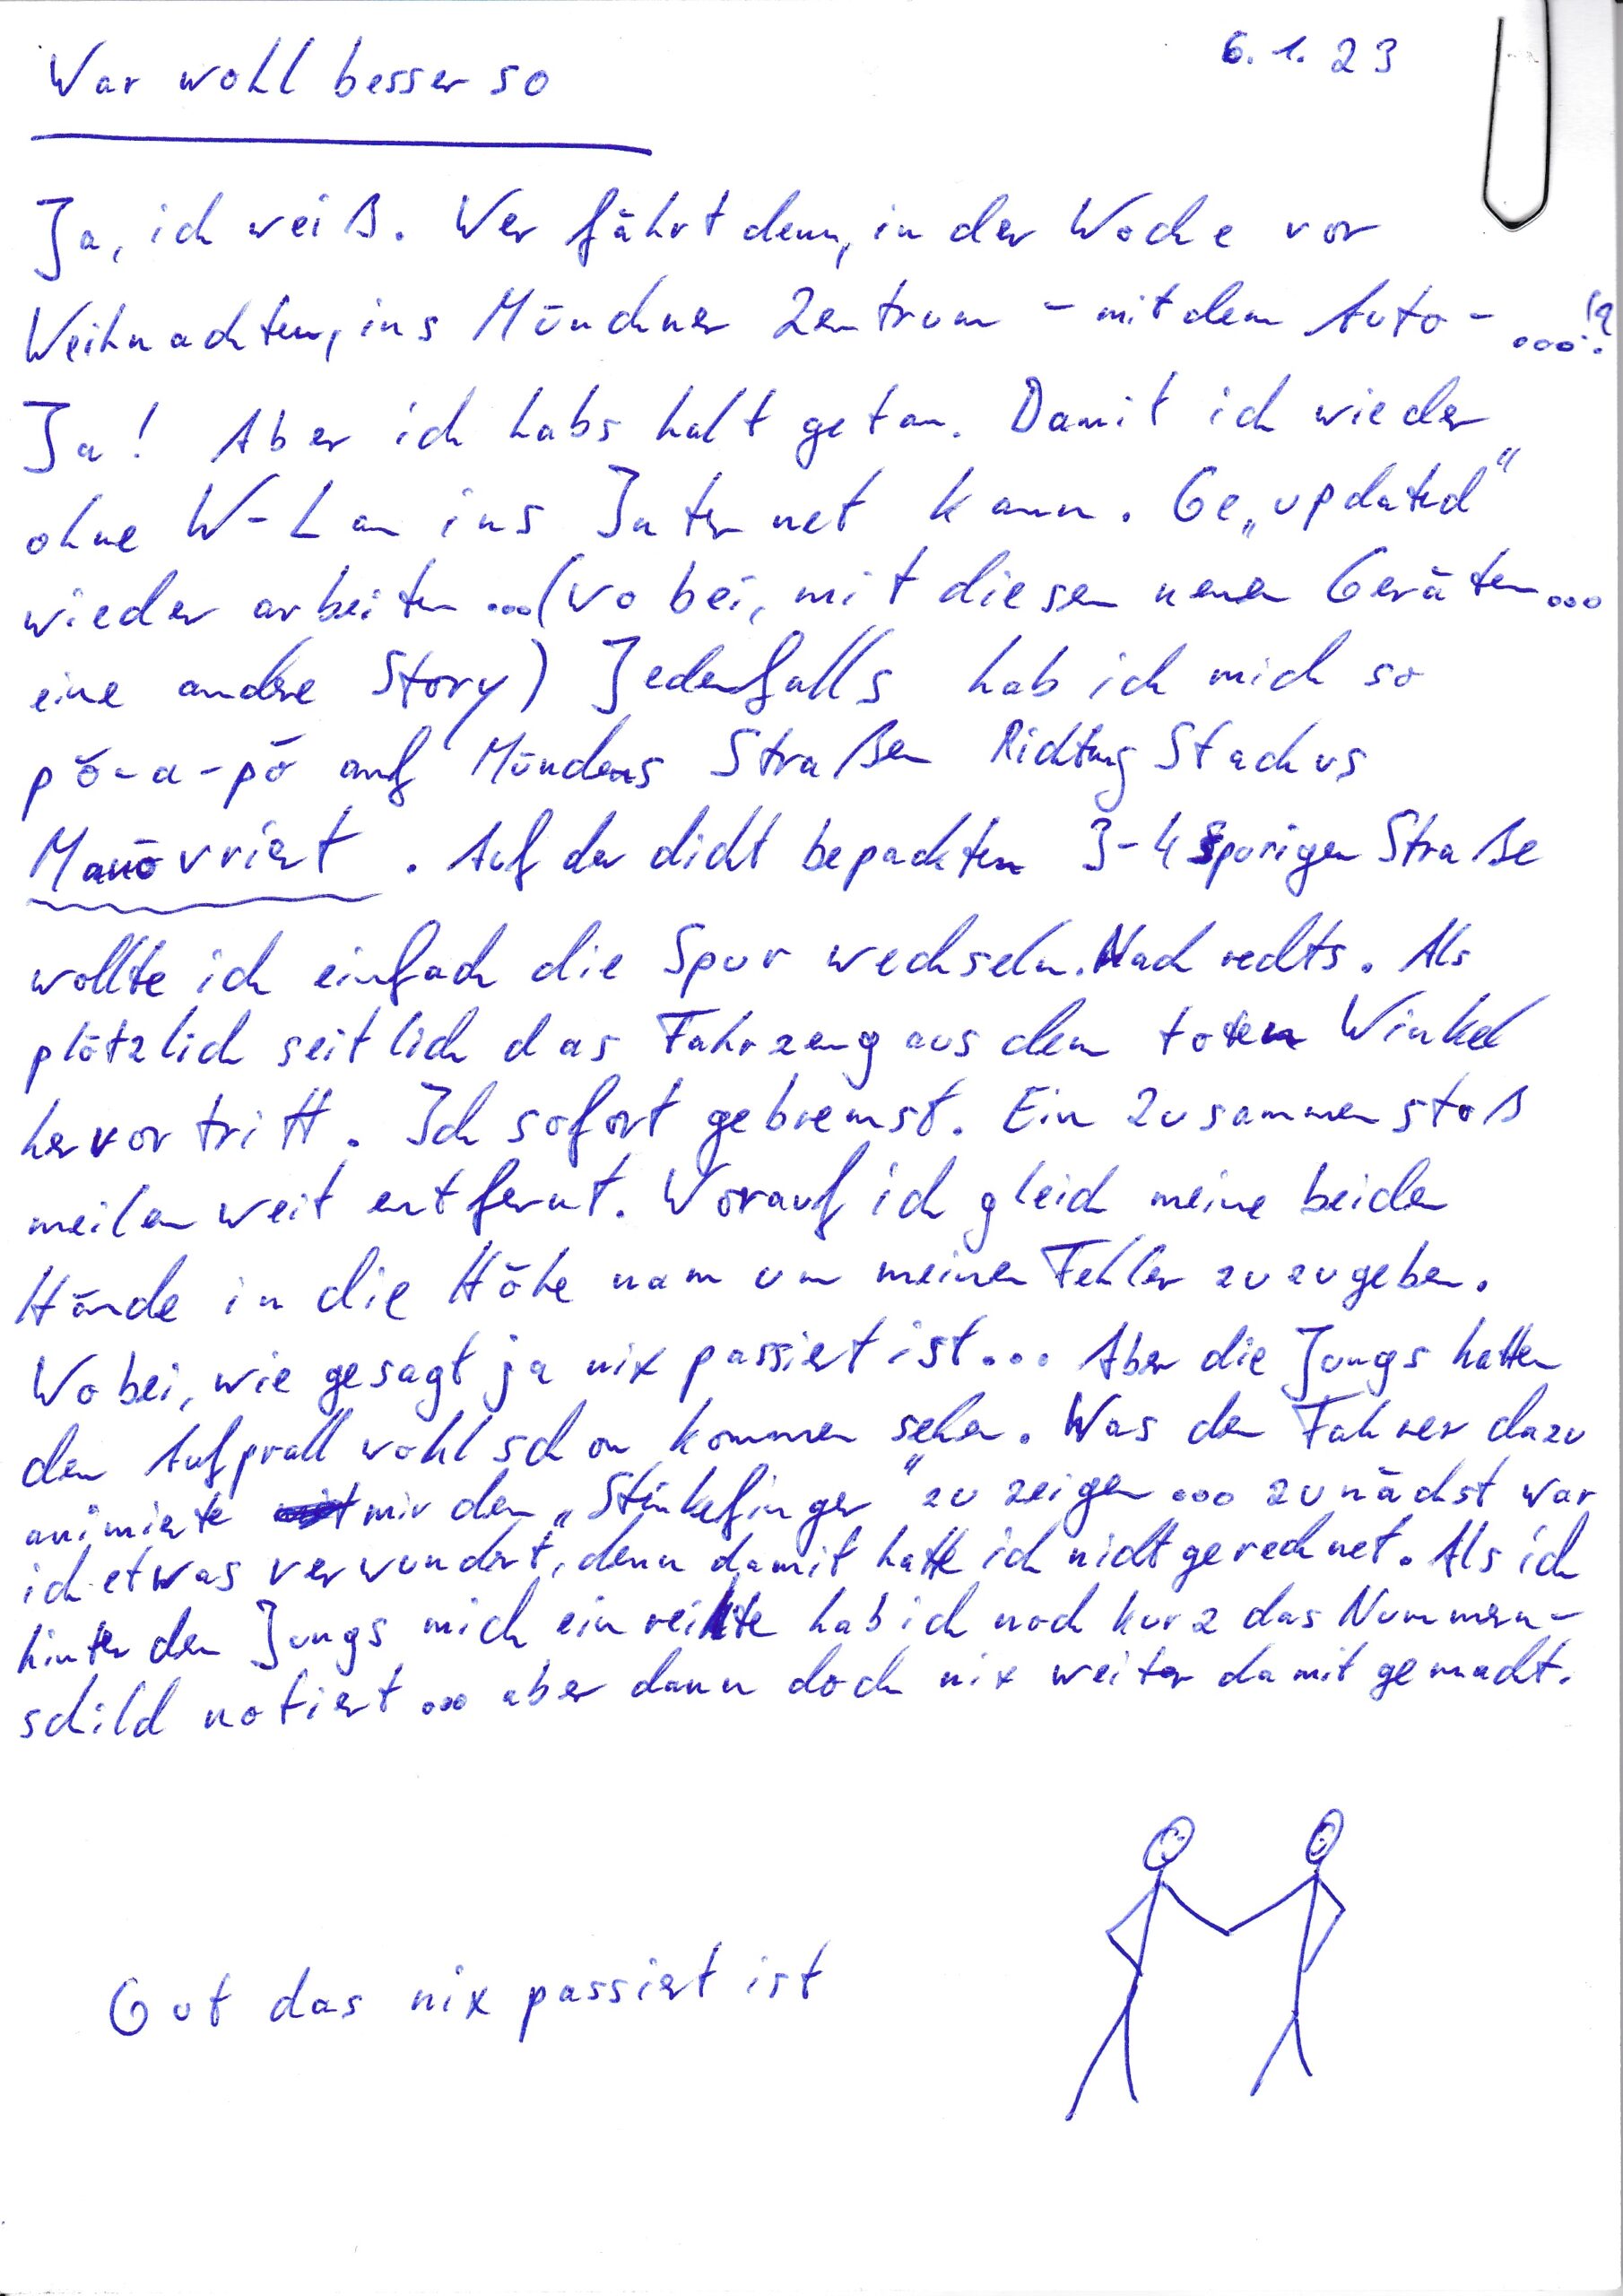 War wohl besser so
6.1.23
Ja, ich weiß. Wer fährt denn, in der Woche vor
Weihnachten, ins Münchner Zentrum - mit dem Auto - ...!?
Ja! Aber ich habs halt getan. Damit ich wieder
ohne W-Lan ins Internet kann. Ge„updated"
wieder arbeiten ... (wobei, mit diesen neuen Geräten...
eine andere Story) Jedenfalls hab ich mich so
pö-a-pö auf Münchens Straßen Richtung Stachus
Manövriert. Auf der dicht bepackten 3-4 spurigen Straße
wollte ich einfach die Spur wechseln. Nach rechts. Als
plötzlich seitlich das Fahrzeug aus dem toten Winkel
hervortritt. Ich sofort gebremst. Ein Zusammenstoß
meilenweit entfernt. Worauf ich gleich meine beiden
Hände in die Höhe nam um meinen Fehler zuzugeben.
Wobei, wie gesagt ja nix passiert ist... Aber die Jungs hatten
den Aufprall wohl schon kommen sehen. Was den Fahrer dazu
animierte mir den „Stinkefinger" zu zeigen ... zunächst war
ich etwas verwundert, denn damit hatte ich nicht gerechnet. Als ich
hinter den Jungs mich einreihte hab ich noch kurz das Nummern-
schild notiert ... aber dann doch nix weiter damit gemacht.
Gut das nix passiert ist